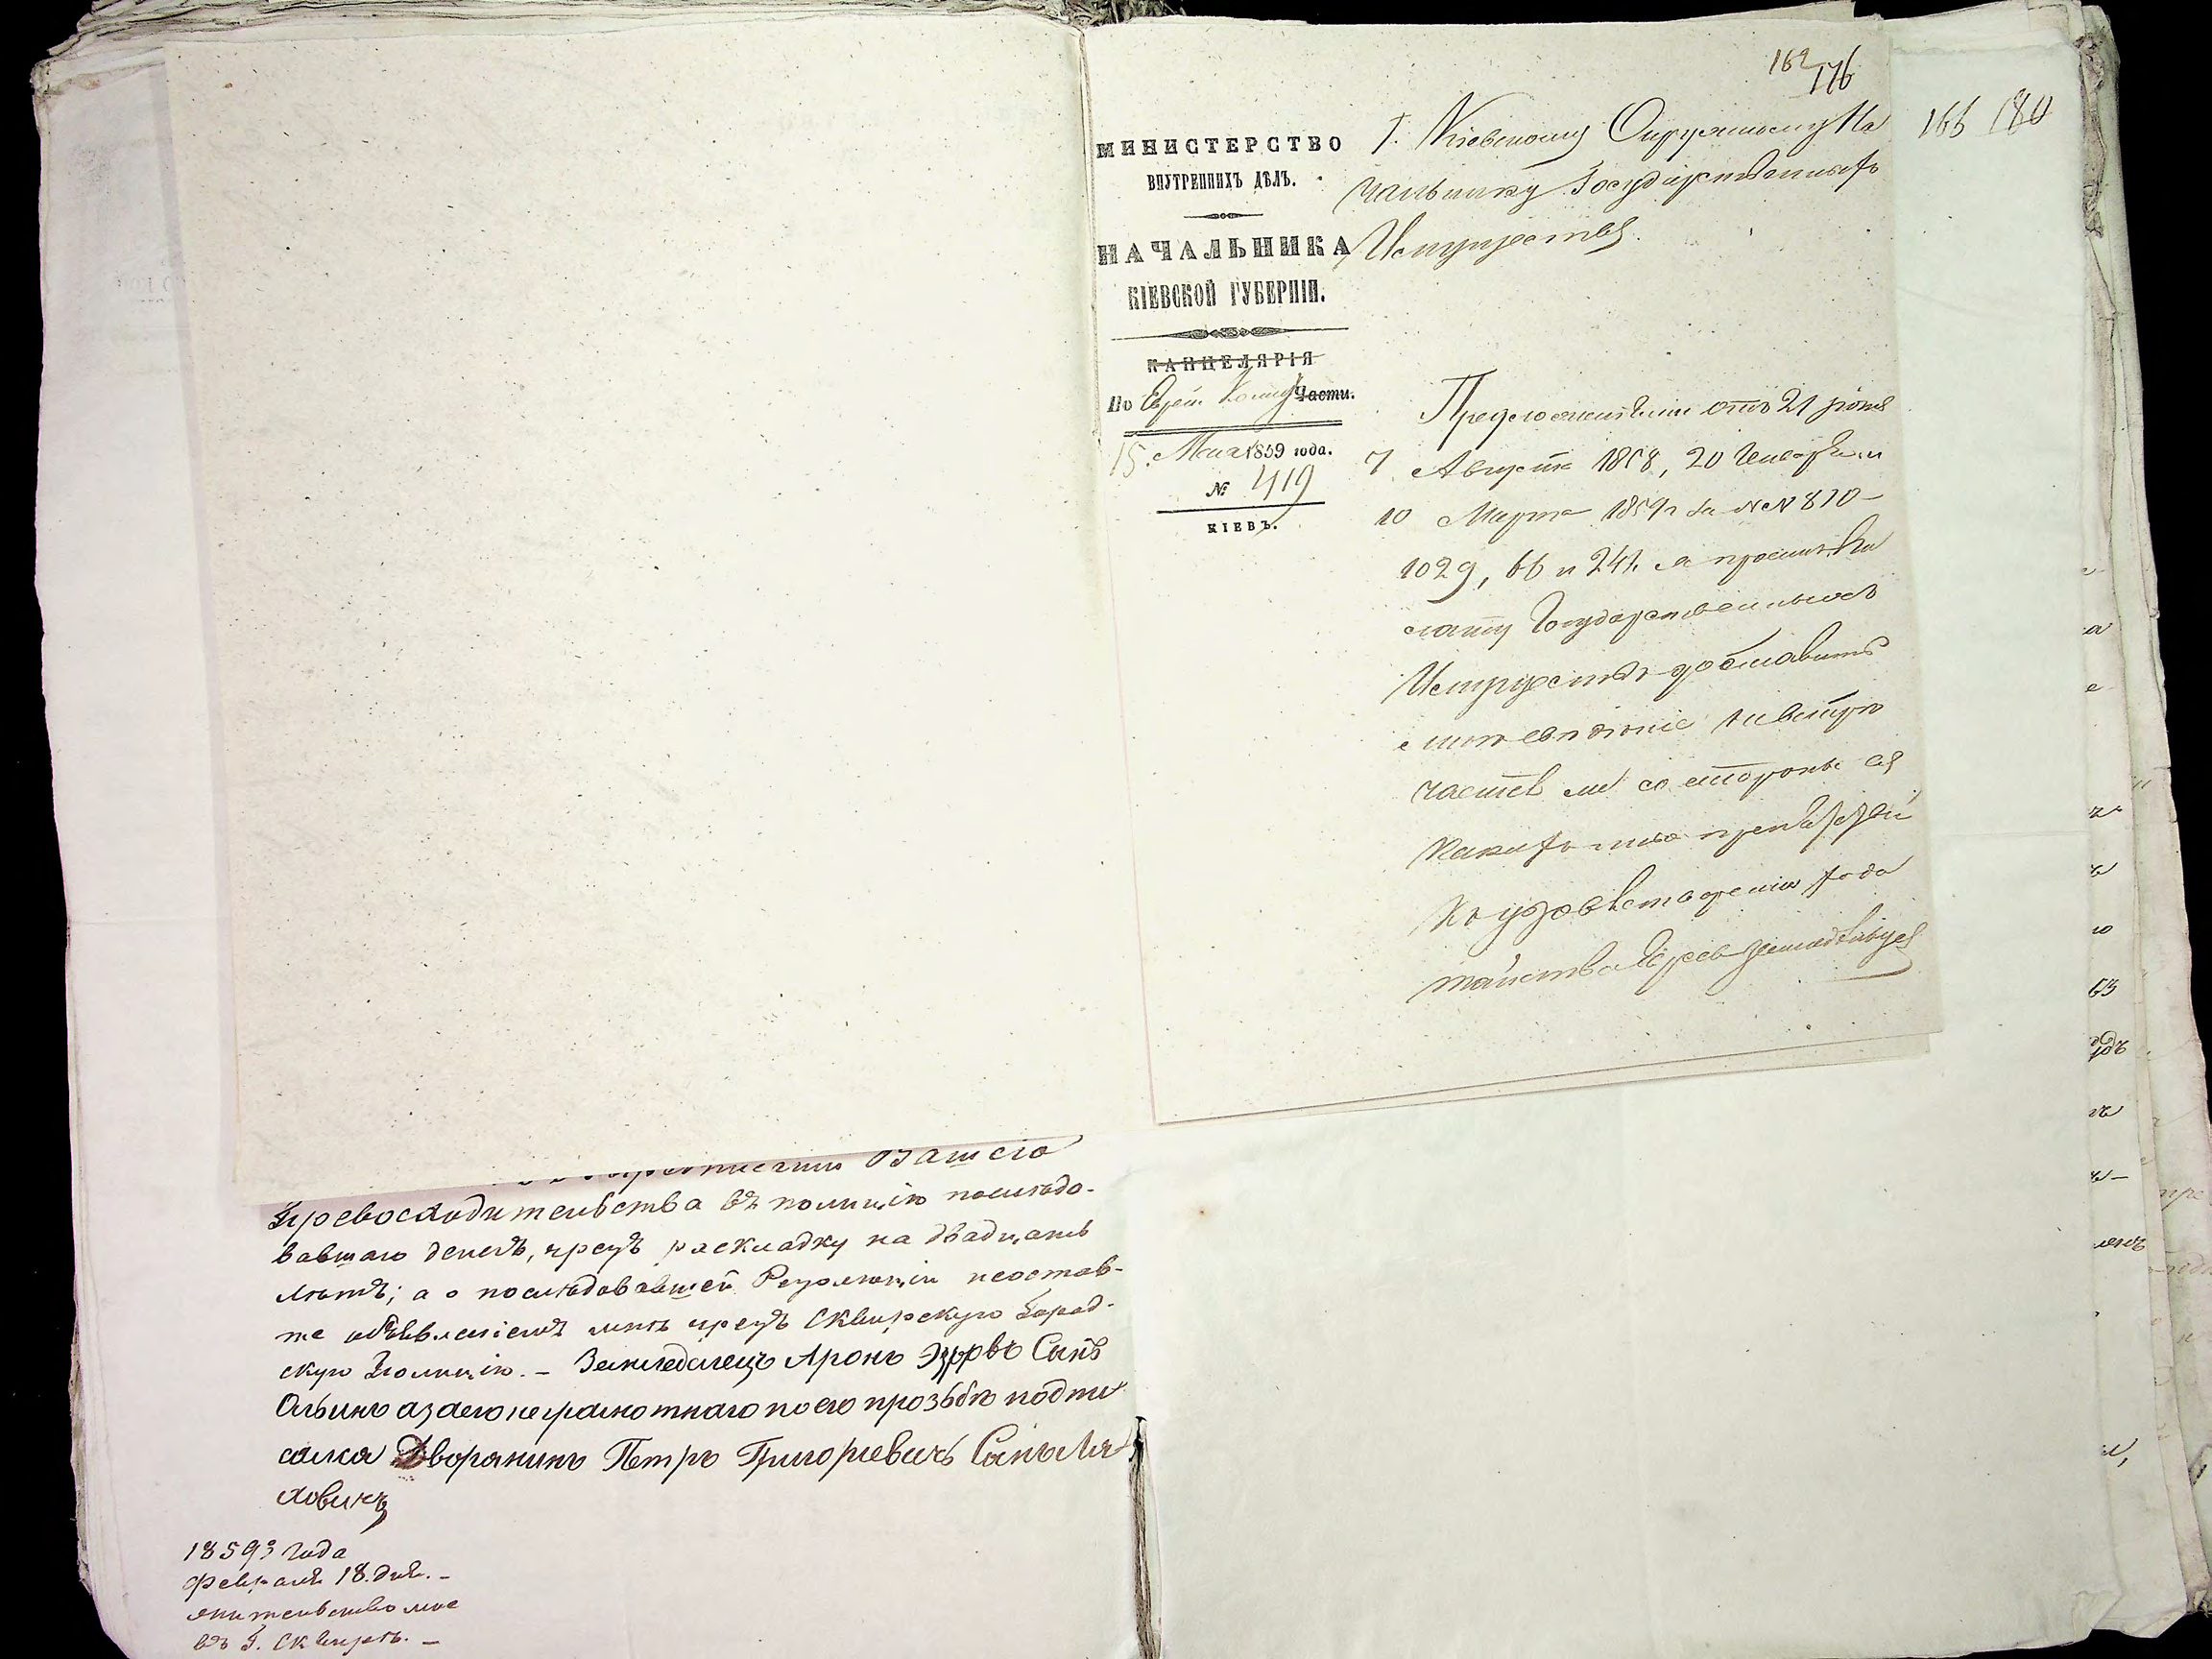 162 176
166 180
МИНИСТЕРСТВО
ВНУТРЕННИХЪ ДѢЛЪ.
НАЧАЛЬНИКА
КІЕВСКОЙ ГУБЕРНІИ.
КАНЦЕЛЯРІЯ
По Еврей. Части.
15. Мая 1859 года.
№ 419
КІЕВЪ.
Г. Кіевскому Окружному На
чальнику Государственныхъ
Имуществъ.
Предложеніями отъ 21 Іюня
7 Августа 1858, 20 Января и
10 Марта 1859 г за №№ 810
1029, 66 и 241 я просилъ Па
лату Государственныхъ
Имуществъ доставить
мнѣ свѣдѣніе
ли со стороны ея
какихъ либо
къ удовлетворенію хода
тайства Евреевъ земледѣльцевъ
Вашего
Превосходительства въ полицію послѣдо-
вавшаго денегъ, чрезъ раскладку на двадцать
лѣтъ; а о послѣдовавшей Резолюціи неостав-
те объявленіемъ мнѣ чрезъ Сквирскую Город-
скую Полицію. – Земледелецъ Аронъ Сынъ
а заего неграмотнаго по его прозьбѣ подпи
салса Дворанинъ Петръ Григоріевичъ Сынъ Ля
ховичъ
1859 Года
Февраля 18. дня. –
жительство мое
въ Г. Сквирѣ. –